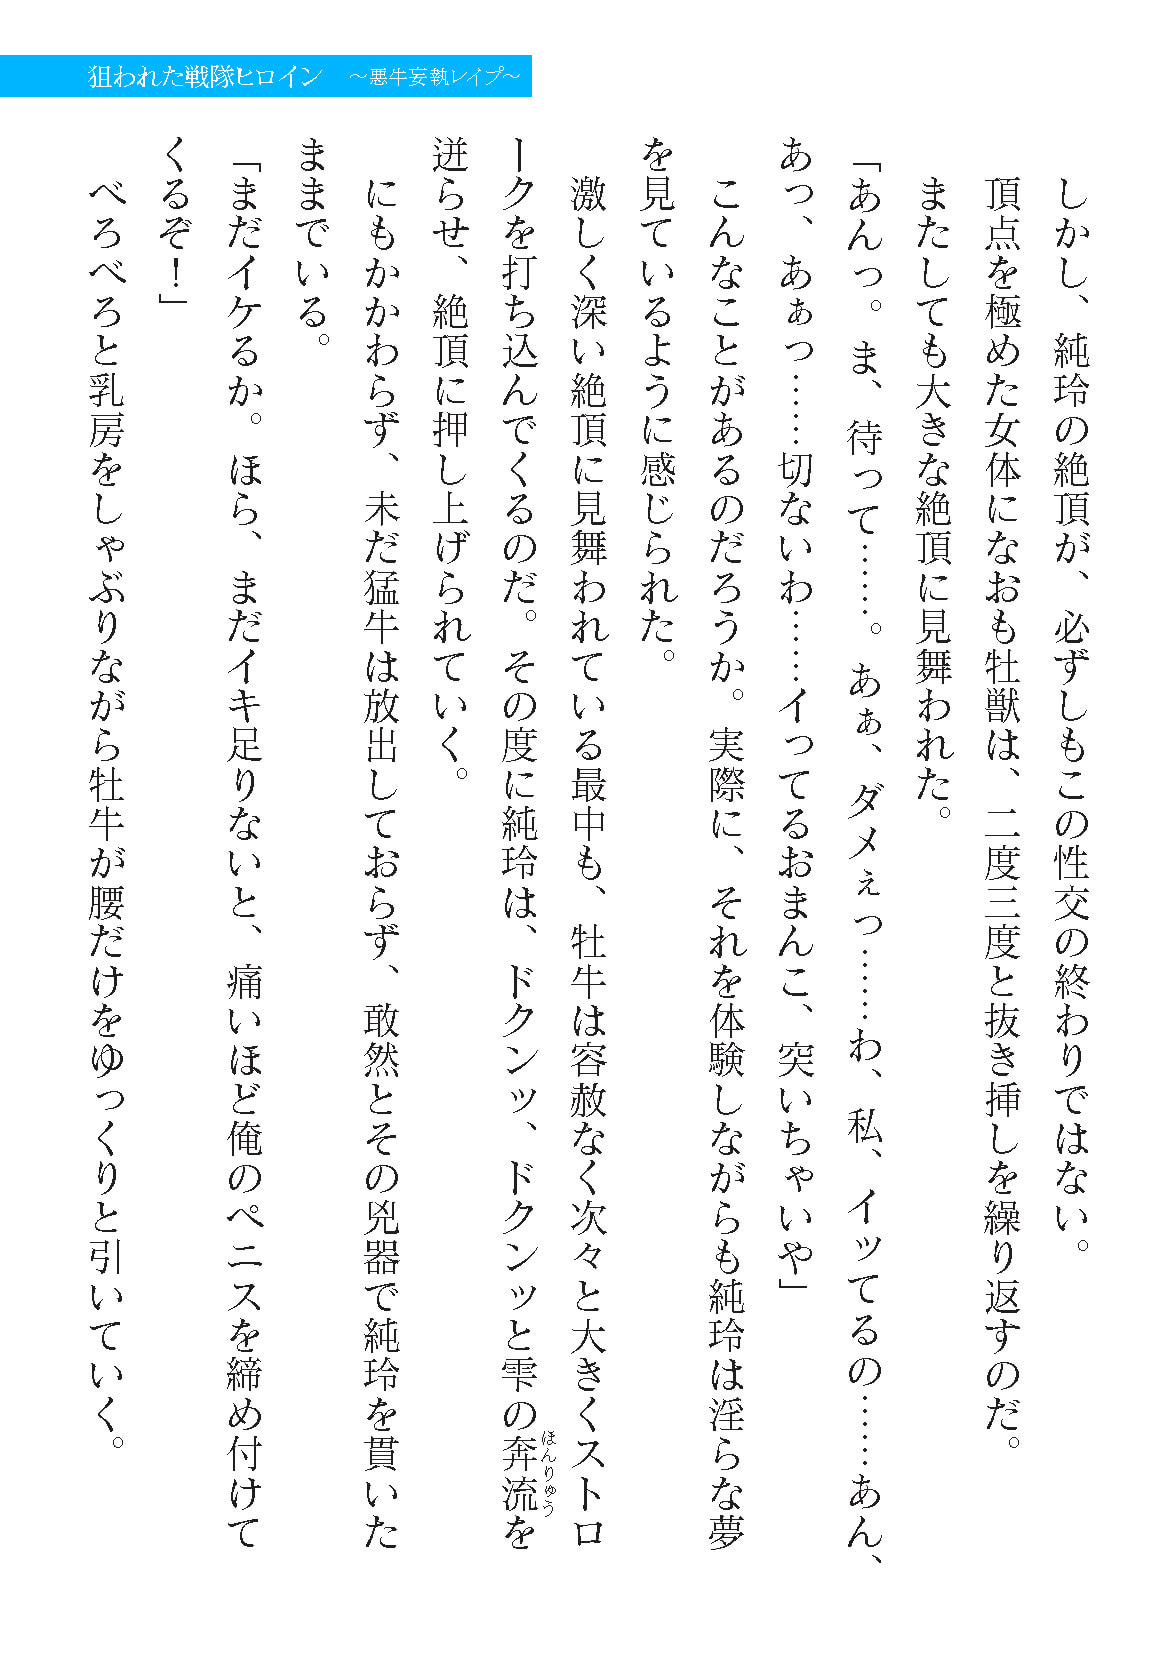 狙われた戦隊ヒロイン　～悪牛妄執レイプ～
しかし、純玲の絶頂が、必ずしもこの性交の終わりではない。
頂点を極めた女体になおも牡獣は、二度三度と抜き挿しを繰り返すのだ。
またしても大きな絶頂に見舞われた。
「あんっ。ま、待って……。あぁ、ダメぇっ……わ、私、イッてるの……あん、
あっ、あぁっ……切ないわ……イってるおまんこ、突いちゃいや」
こんなことがあるのだろうか。実際に、それを体験しながらも純玲は淫らな夢
を見ているように感じられた。
激しく深い絶頂に見舞われている最中も、牡牛は容赦なく次々と大きくストロ
ークを打ち込んでくるのだ。その度に純玲は、ドクンッ、ドクンッと雫の奔流を
ほんりゅう
迸らせ、絶頂に押し上げられていく。
にもかかわらず、未だ猛牛は放出しておらず、敢然とその兇器で純玲を貫いた
ままでいる。
「まだイケるか。ほら、まだイキ足りないと、痛いほど俺のペニスを締め付けて
くるぞ！」
べろべろと乳房をしゃぶりながら牡牛が腰だけをゆっくりと引いていく。